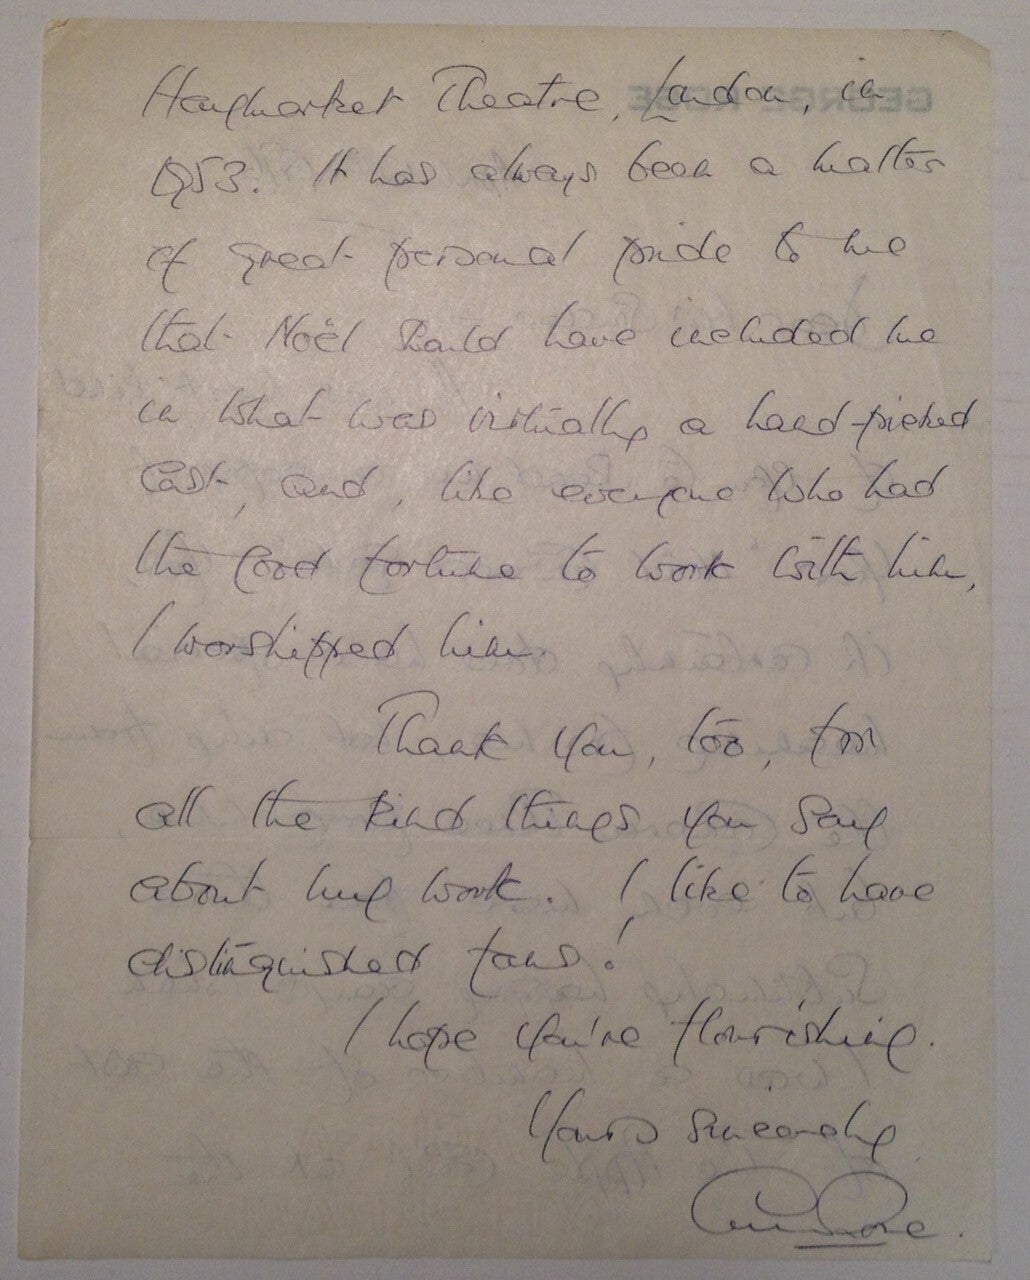 Haymarket Theatre, London, in
1953. It has always been a matter
of great personal pride to me
that Noël should have included me
in what was virtually a hand-picked
cast, and, like everyone who had
the good fortune to work with him,
I worshipped him.
Thank you, too, for
all the kind things you say
about my work. I like to have
distinguished fans!
I hope you're flourishing.
Yours sincerely
George Rose.
GEORGE ROSE